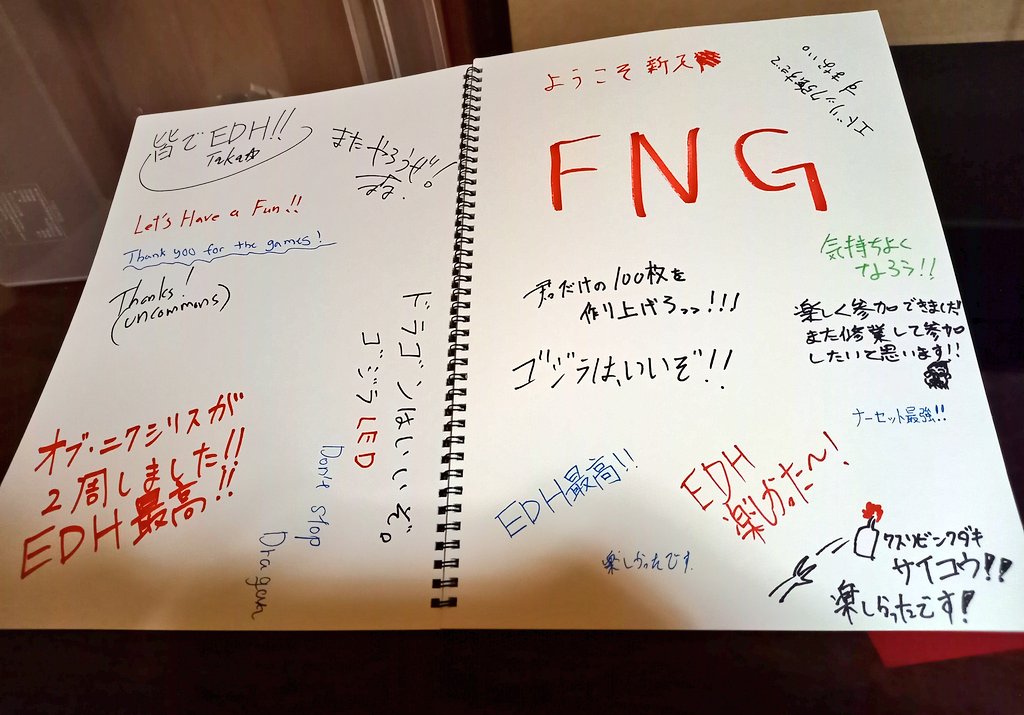 皆でEDH!!
Let's Have a Fun!!
Thank you for the games!
Thanks!
(uncommons)
ドラゴンはいいぞ。
ゴジラLED
Don't stop
Dragon
オブ・ニクシリスが
2周しました!!
EDH最高!!
ようこそ新兄
FNG
気持ちよく
なろう!!
君だけの100枚を
作り上げろっっ!!!
ゴジラは、いいぞ!!
楽しく参加できました
また修業して参加
したいと思います!!
ナーセット最強!!
EDH最高!!
EDH
楽しかった～!
楽しかったです
クスリビンクダキ
サイコウ!!
楽しかったです!